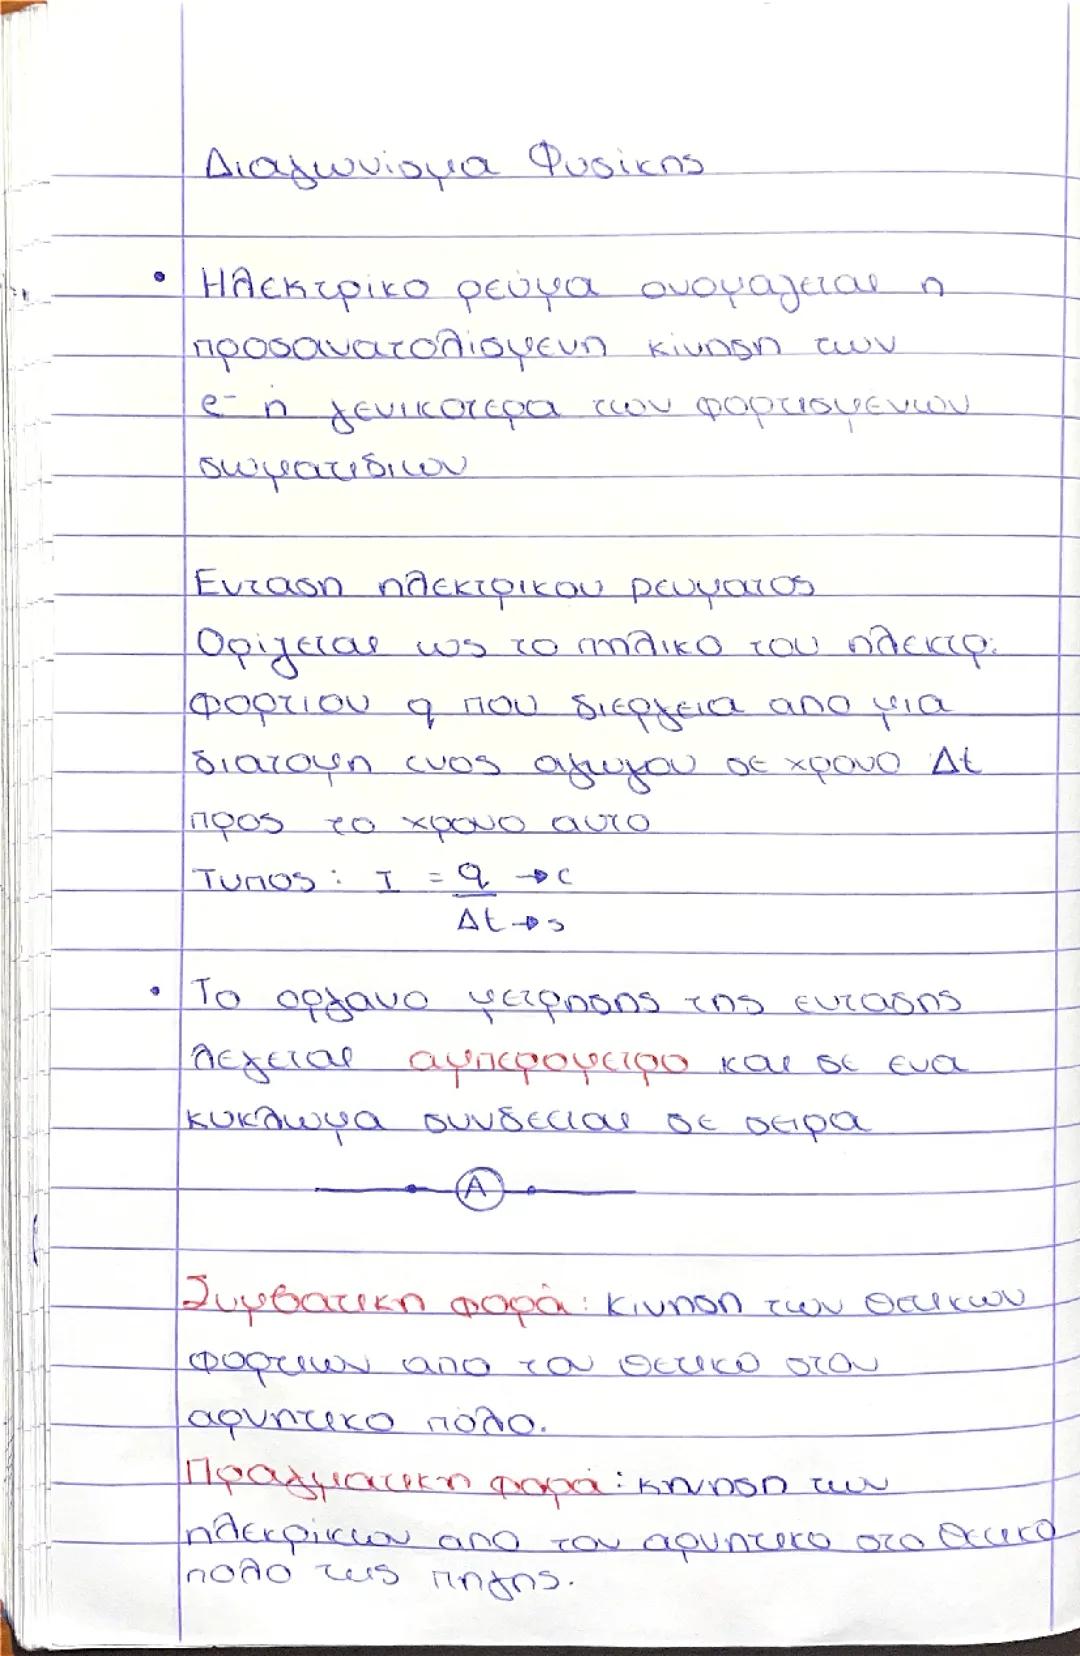 Διαγωνισμα Φυσικης
• Ηλεκτρικο ρευμα ονομαζεται η
προσανατολισμενη κινηση των
e⁻ η γενικοτερα των φορτισμενων
σωματιδιων
Ενταση ηλεκτρικου ρευματος
Οριζεται ως το πηλικο του ηλεκτρ.
φορτιου q που διεργεια απο μια
διατομη ενος αγωγου σε χρονο Δt
προς το χρονο αυτο
Τυπος: I = q → C
Δt → s
• Το οργανο μετρησης της εντασης
λεγεται αμπερομετρο και σε ενα
κυκλωμα συνδεεται σε σειρα
A
Συμβατικη φορά: κινηση των θετικων
φορτιων απο το θετικο στον
αρνητικο πολο.
Πραγματικη φορά: κηνηση των
ηλεκρικων απο τον αρνητικο στο θετικο
πολο της πηγης.